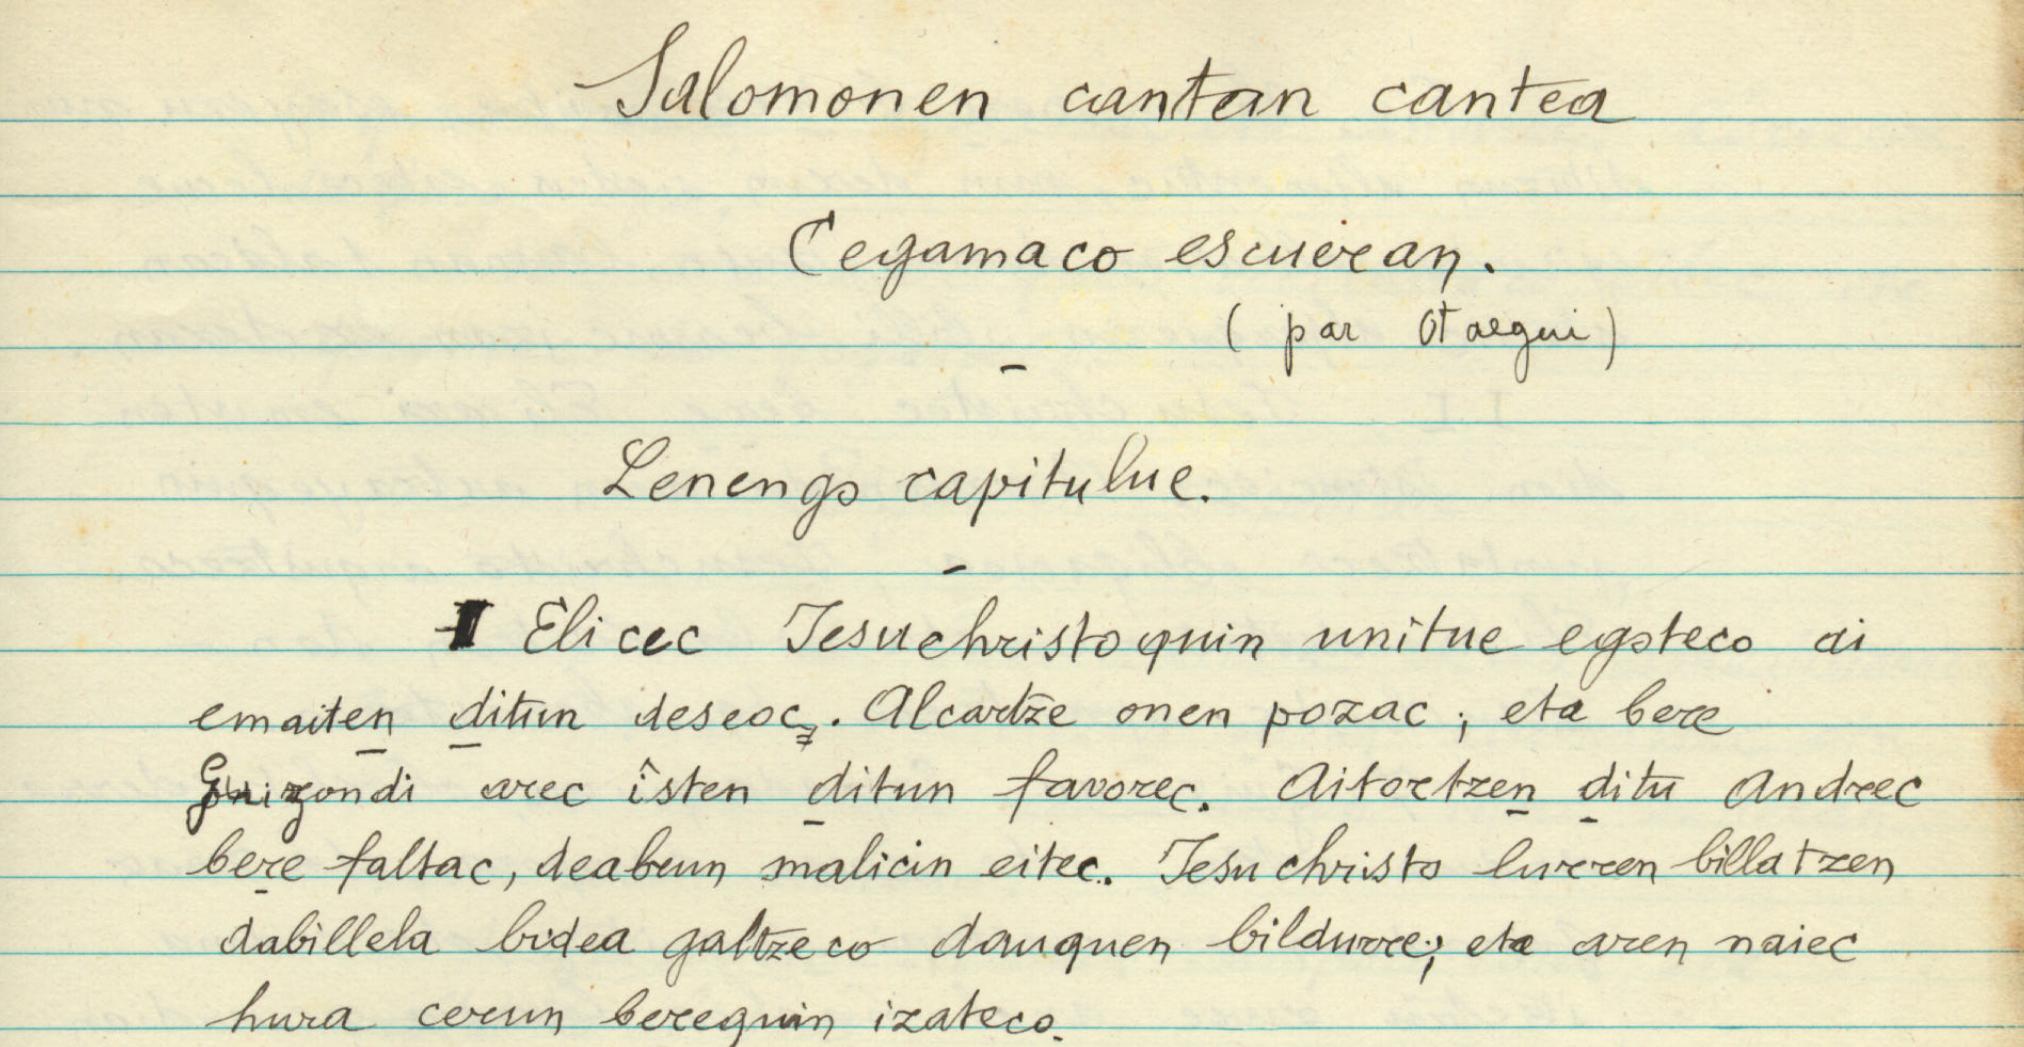 Salomonen cantan cantea
Cegamaco escueran.
( par Otaegui )
Lenengo capitulue.
I Elicec Jesuchristoquin unitue egoteco ai
emaiten ditun deseoc. Alcartze onen pozac; eta bere
Guizondi arec îsten ditun favorec. Aitortzen ditu Andrec
bere faltac, deabrun malicin eitec. Jesuchristo lurren billatzen
dabillela bidea galtzeco dauquen bildurre; eta aren naiec
hura cerun berequin izateco.